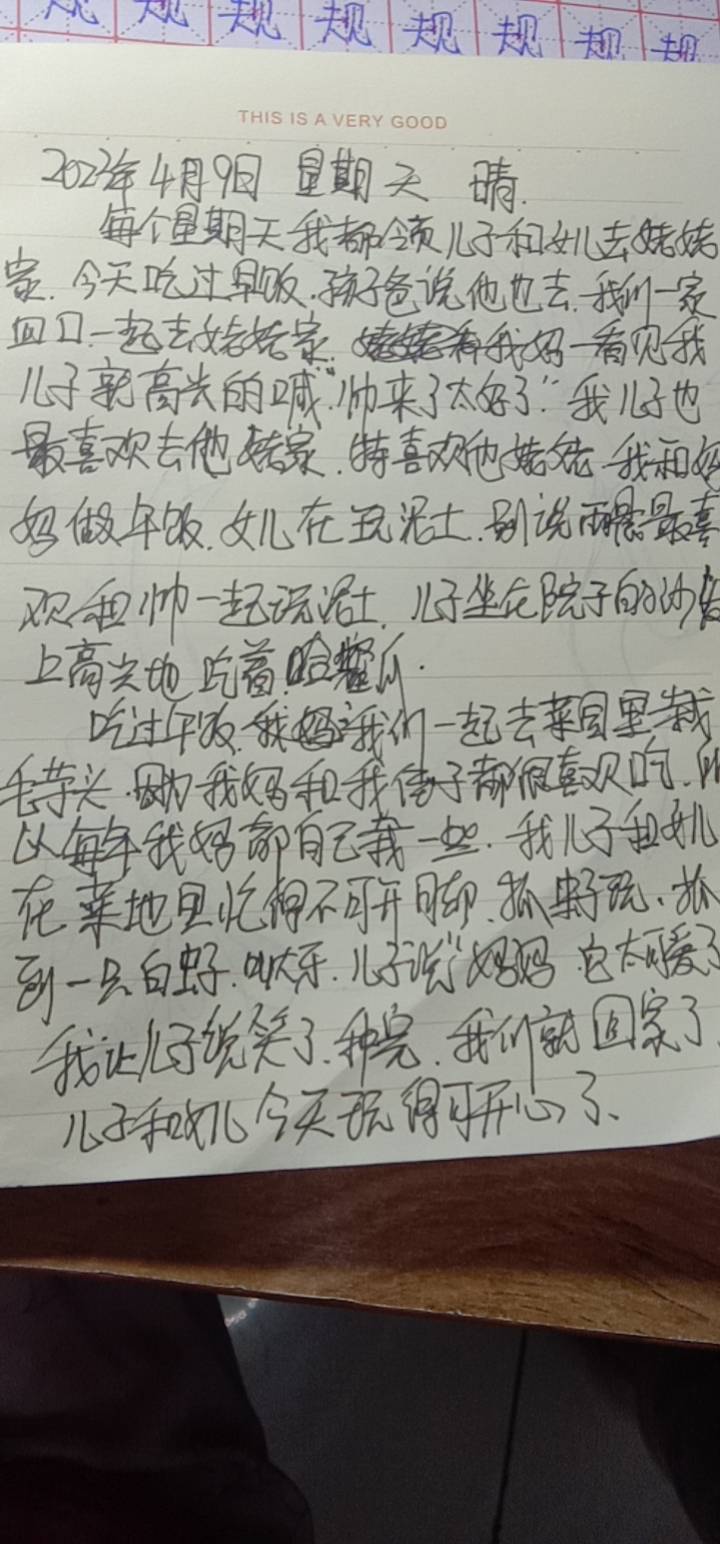 规 规 规 规 规 规 规 规
THIS IS A VERY GOOD
2023年4月9日 星期天 晴.
每个星期天我都领儿子和女儿去姥姥
家.今天吃过早饭.孩子爸说他也去.我们一家
四口.一起去姥姥家.我妈一看见我
儿子就高兴的喊"帅来了太好了"我儿子也
最喜欢去他姥家.特喜欢他姥姥.我和妈
妈做午饭.女儿在玩泥土.别说雨最喜
欢和帅一起玩泥土.儿子坐在院子的沙
上高兴地吃着哈
吃过午饭.我妈我们一起去菜园里栽
毛芋头.因为我妈和我侄子都很喜欢吃.所
以每年我妈都自己栽一些.我儿子和女儿
在菜地里忙得不可开脚.抓虫子玩.抓
到一只白虫子.叫大牙.儿子说"妈妈它太可爱了
我让儿子说笑了.种完.我们就回家了.
儿子和女儿今天玩得可开心了.